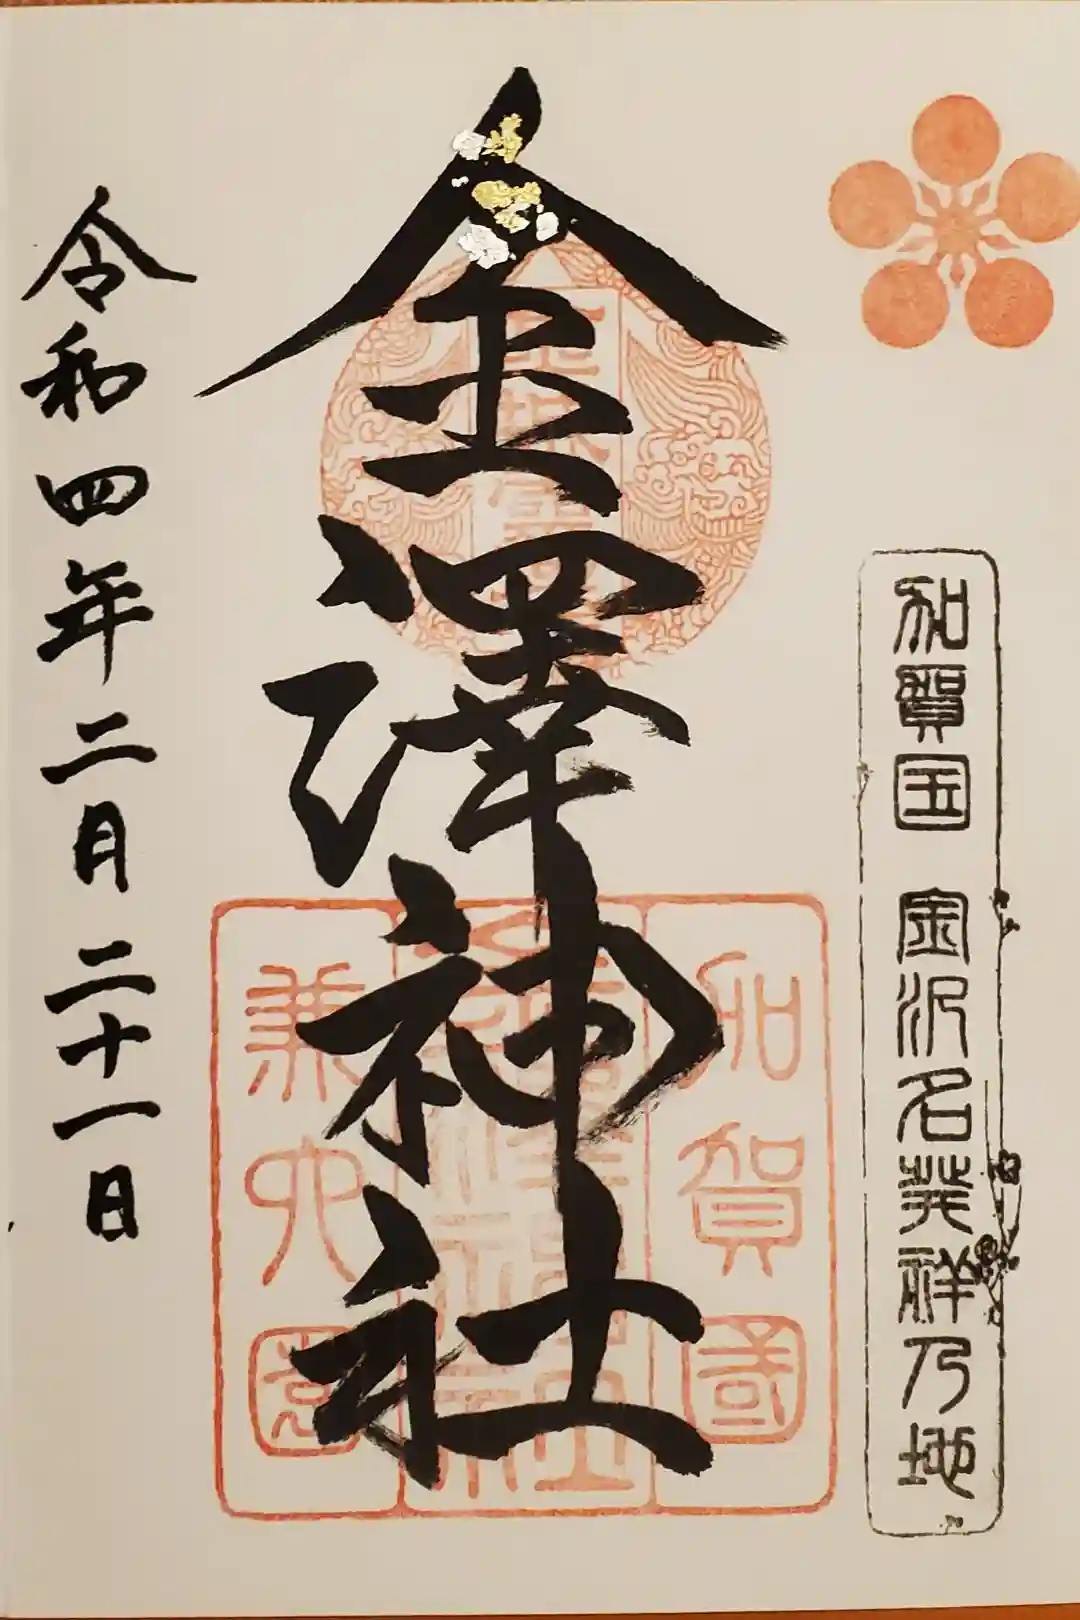 加賀国 金沢名発祥乃地
金澤神社
加賀國
兼六園
令和四年二月二十一日